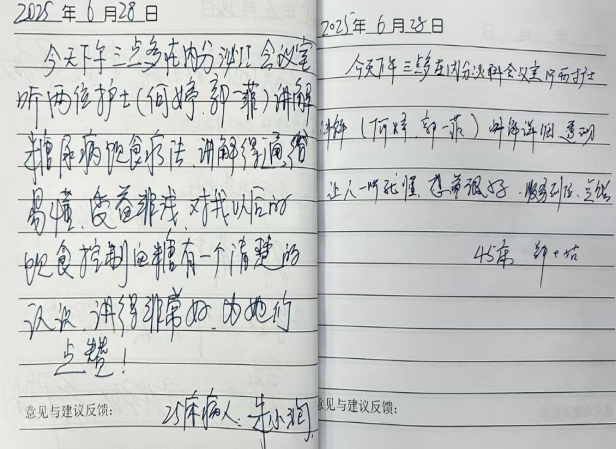 2025 年 6 月 28 日
今天下午三点多在内分泌II会议室
听两位护士(何婷、郭一菲)讲解
糖尿病饮食疗法,讲解得通俗
易懂,受益非浅,对我以后的
饮食控制血糖有一个清楚的
认识,讲得非常好,为她们
点赞!
意见与建议反馈: 25床病人:朱小润
2025 年 6 月 28 日
今天下午三点多在内分泌科会议室听两护士
讲解(何婷、郭一菲)讲解详细
让人一听就懂,很好,服务到位、点赞
45床 郑
意见与建议反馈: